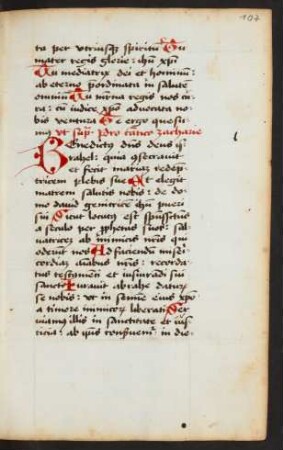 107
ta per utriusqz spiritu Tu
mater regis glorie: ihu xpi
Tu mediatrix dei et hominum:
ab eterno pordinata in salute
omnium Tu virtua regis nos cu
ra: cu iudice xpo advocata no
bis ventura Te ergo quesu
mus vt sup. Pro cantico zacharie
Benedictus dns deus isrl
rahel: quia consecrauit
et fecit mariaz redep
tricem plebis sue Et elegit
matrem salutis nobis: de do
mo dauid genitricem ihu pueri
sui Sicut locutus est spussctus
a seculo per prophetas suos:
saluatricez ab inimicis nris qui
oderunt nos Ad faciendu miseri
cordiaz animabus nris: recorda
tus testamenti et iusiuradi sui
sancto Iurauit abrahe daturuz
se nobis: vt in semine eius xpo
a timore inimicorum liberati Ser
uiamus illis in sanctitate et ius
ticia: ab quos conseruem in die